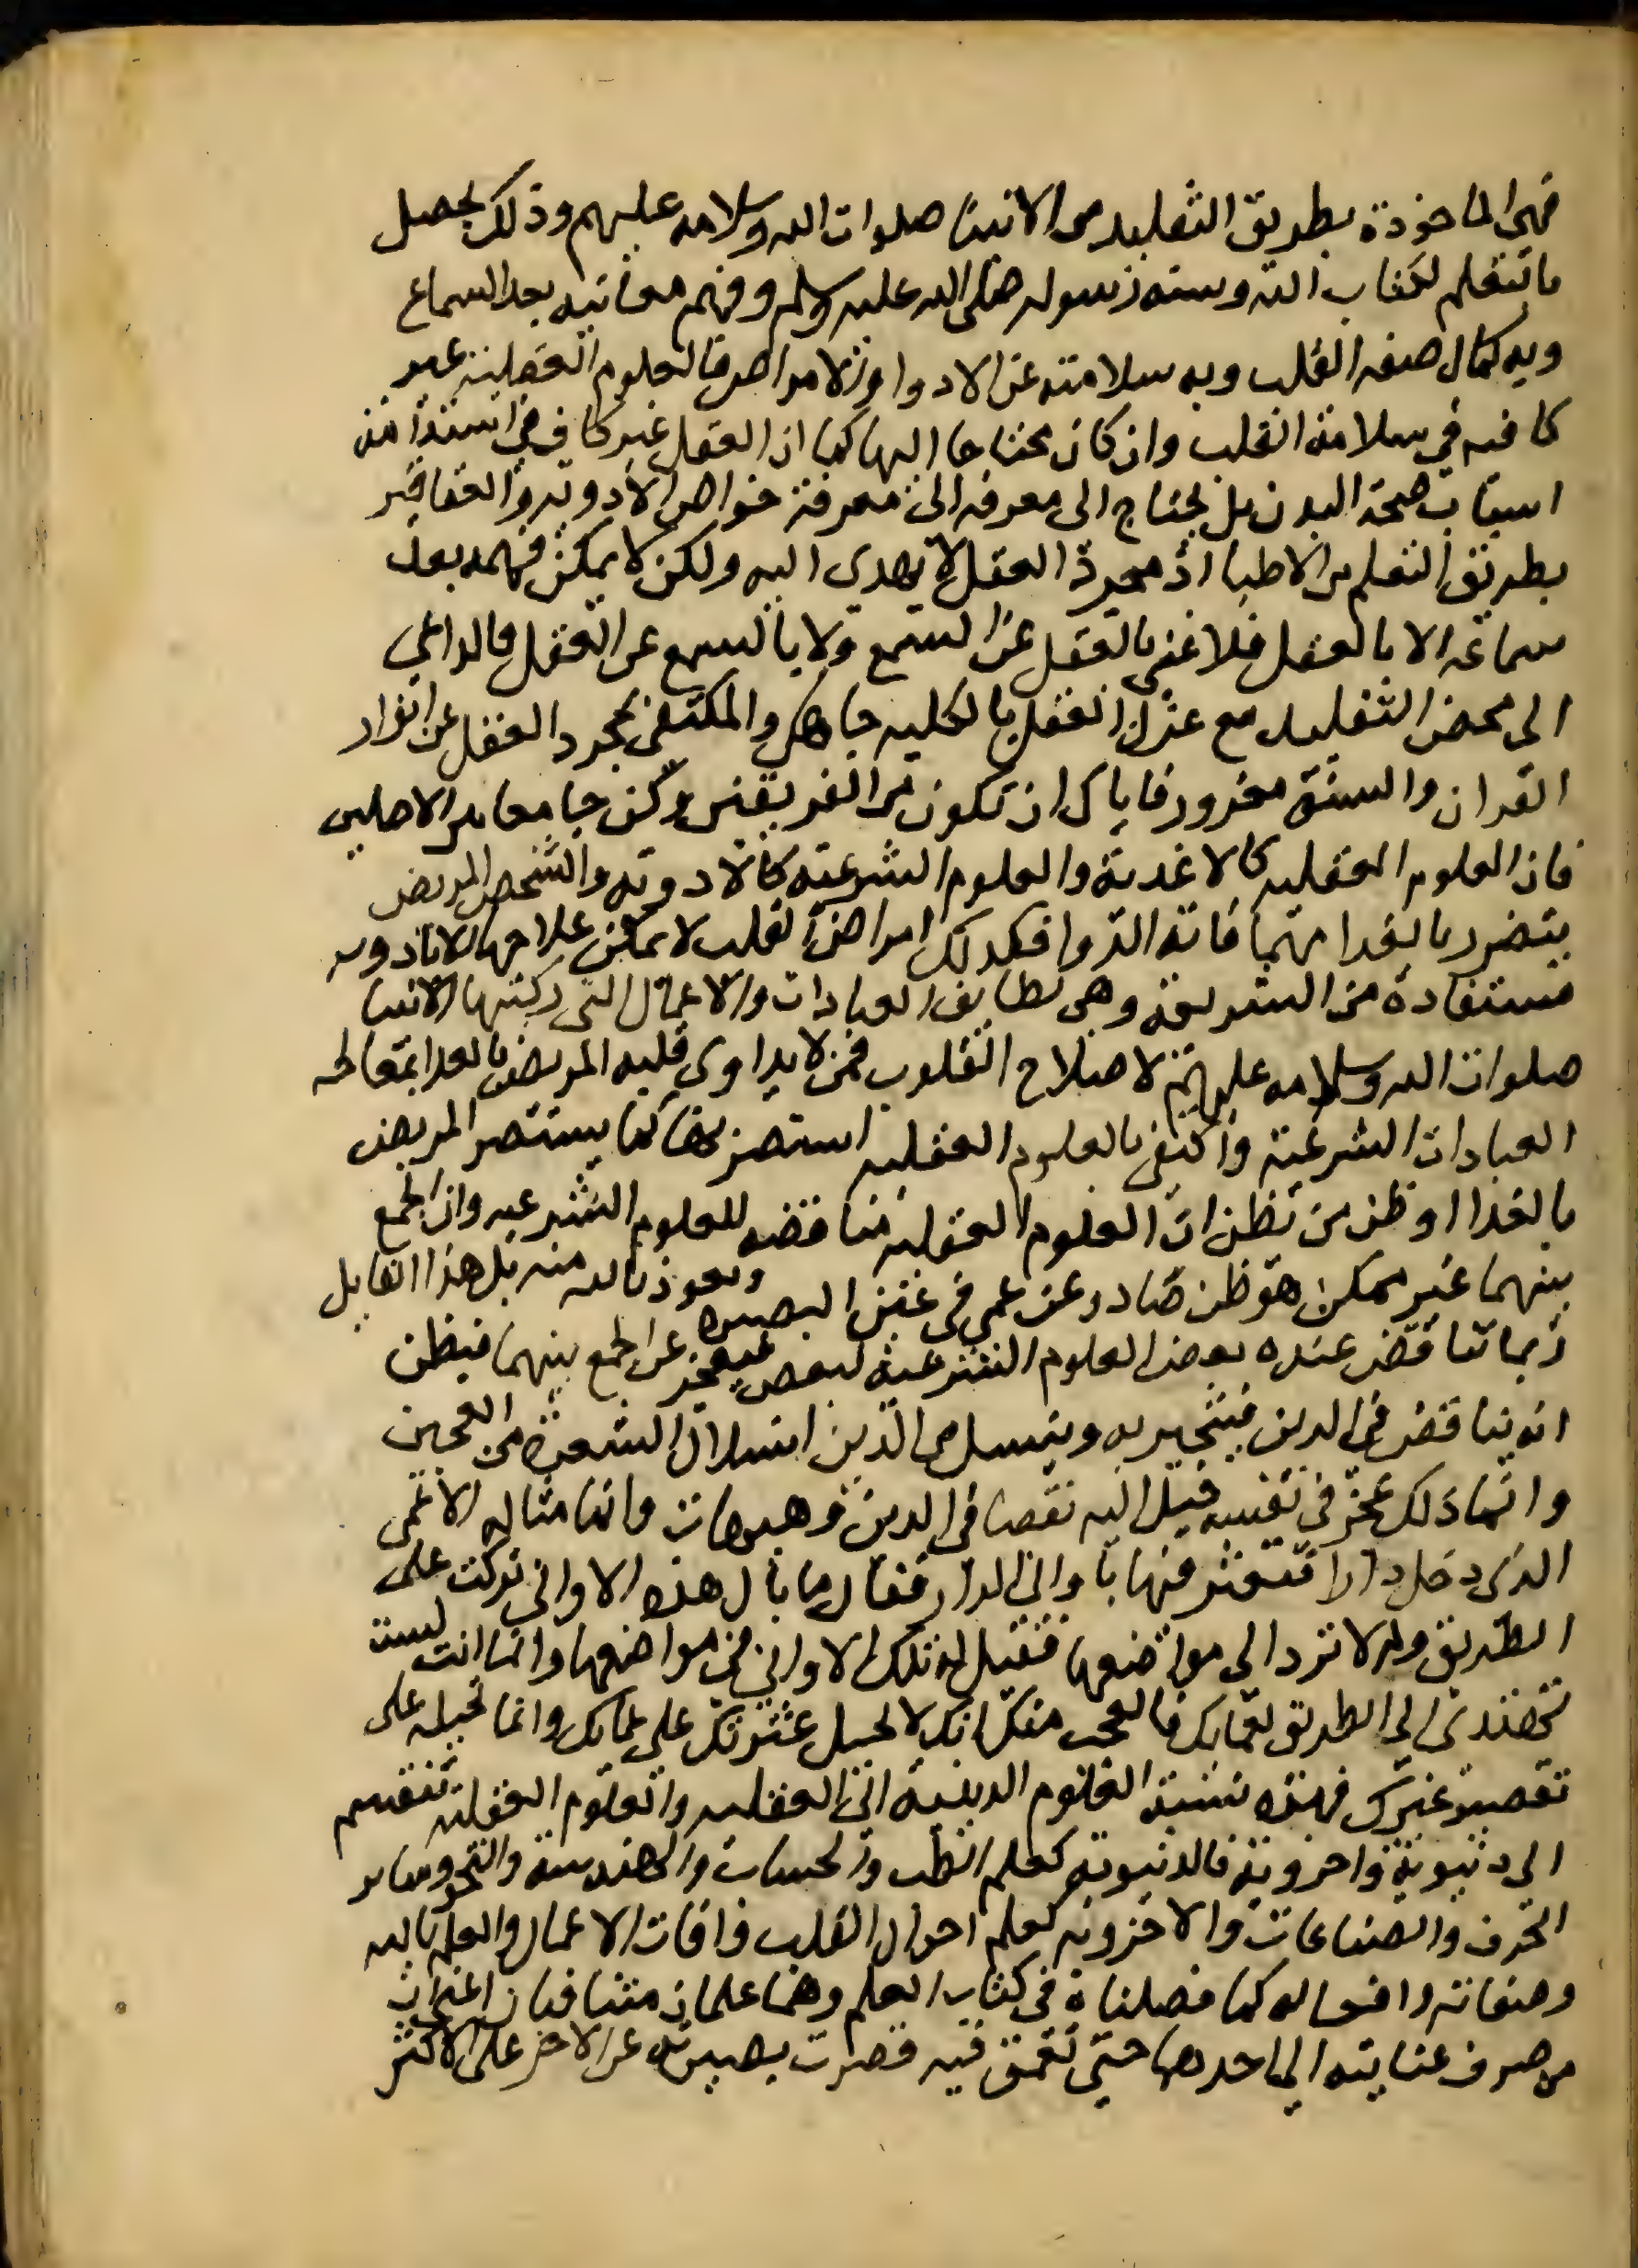 فهي الماخوذة بطريق التقليد من الانبيا صلوات الله وسلامه عليهم وذلك يحصل
بالتعلم لكتاب الله وسنه رسوله صلى الله عليه وسلم وفهم معانيه بعد السماع
وبه كمال صفه القلب وبه سلامته عن الادوا والامراض فالعلوم العقلية غير
كافيه في سلامة القلب وان كان محتاجا اليها كما ان العقل غير كاف في استدامة
اسباب صحة البدن بل يحتاج الى معرفه الى معرفة خواص الادوية والعقاقير
بطريق التعلم من الاطبا اذ مجرد العقل لا يهدي اليه ولكن لا يمكن فهمه بعد
سماعه الا بالعقل فلا غنى بالعقل عن السمع ولا بالسمع عن العقل فالداعي
الى محض التقليد مع عزل العقل بالكليه جاهل والمكتفي بمجرد العقل عن انوار
القران والسنة مغرور فاياك ان تكون من الفريقين وكن جامعا بين الاصلين
فان العلوم العقليه كالاغدية والعلوم الشرعية كالادوية والشخص المريض
يتضرر بالغدا مهما فاته الدوا فكدلك امراض القلب لا يمكن علاجها الا بالادويه
مستفادة من الشريعة وهي لطايف العبادات والاعمال التي ركبتها الانبيا
صلوات الله وسلامه عليهم لاصلاح القلوب فمن لا يداوي قلبه المريض بالغدا بمعالجه
العبادات الشرعية واكتفى بالعلوم العقليه استضر بها كما يستضر المريض
بالغدا او ظن من يظن ان العلوم العقليه مناقضه للعلوم الشرعيه وان الجمع
بينهما غير ممكن هو ظن صادر عن عمى في عين البصيره ونعوذ بالله منه بل هذا القايل
ربما تناقض عنده بعض العلوم الشرعية لبعض فيعجز عن الجمع بينهما فيظن
انه يناقض في الدين فيتحير به وينسل من الدين انسلال الشعرة من العجين
وانما ذلك عجز في نفسه خيل اليه نقصا في الدين وهيهات وانما مثاله الاعمى
الذي دخل دارا فتعثر فيها باواني الدار فقال ما بال هذه الاواني تركت على
الطريق ولم لا ترد الى مواضعها فقيل له تلك الاواني في مواضعها وانما انت لست
تهتدي الى الطريق لعماك فالعجب منك انك لا تحيل عثرتك على عماك وانما تحيله على
تقصير غيرك فهذه نسبة العلوم الدينية الى العقليه والعلوم العقليه تنقسم
الى دنيوية واخروية فالدنيوية كعلم الطب والحساب والهندسة والنجوم وساير
الحرف والصناعات والاخرويه كعلم احوال القلب وافات الاعمال والعلم بالله
وصفاته وافعاله كما فصلناه في كتاب العلم وهما علمان متنافيان اعني ان
من صرف عنايته الى احدهما حتى تعمق فيه قصرت بصيرته عن الاخر على الاكثر